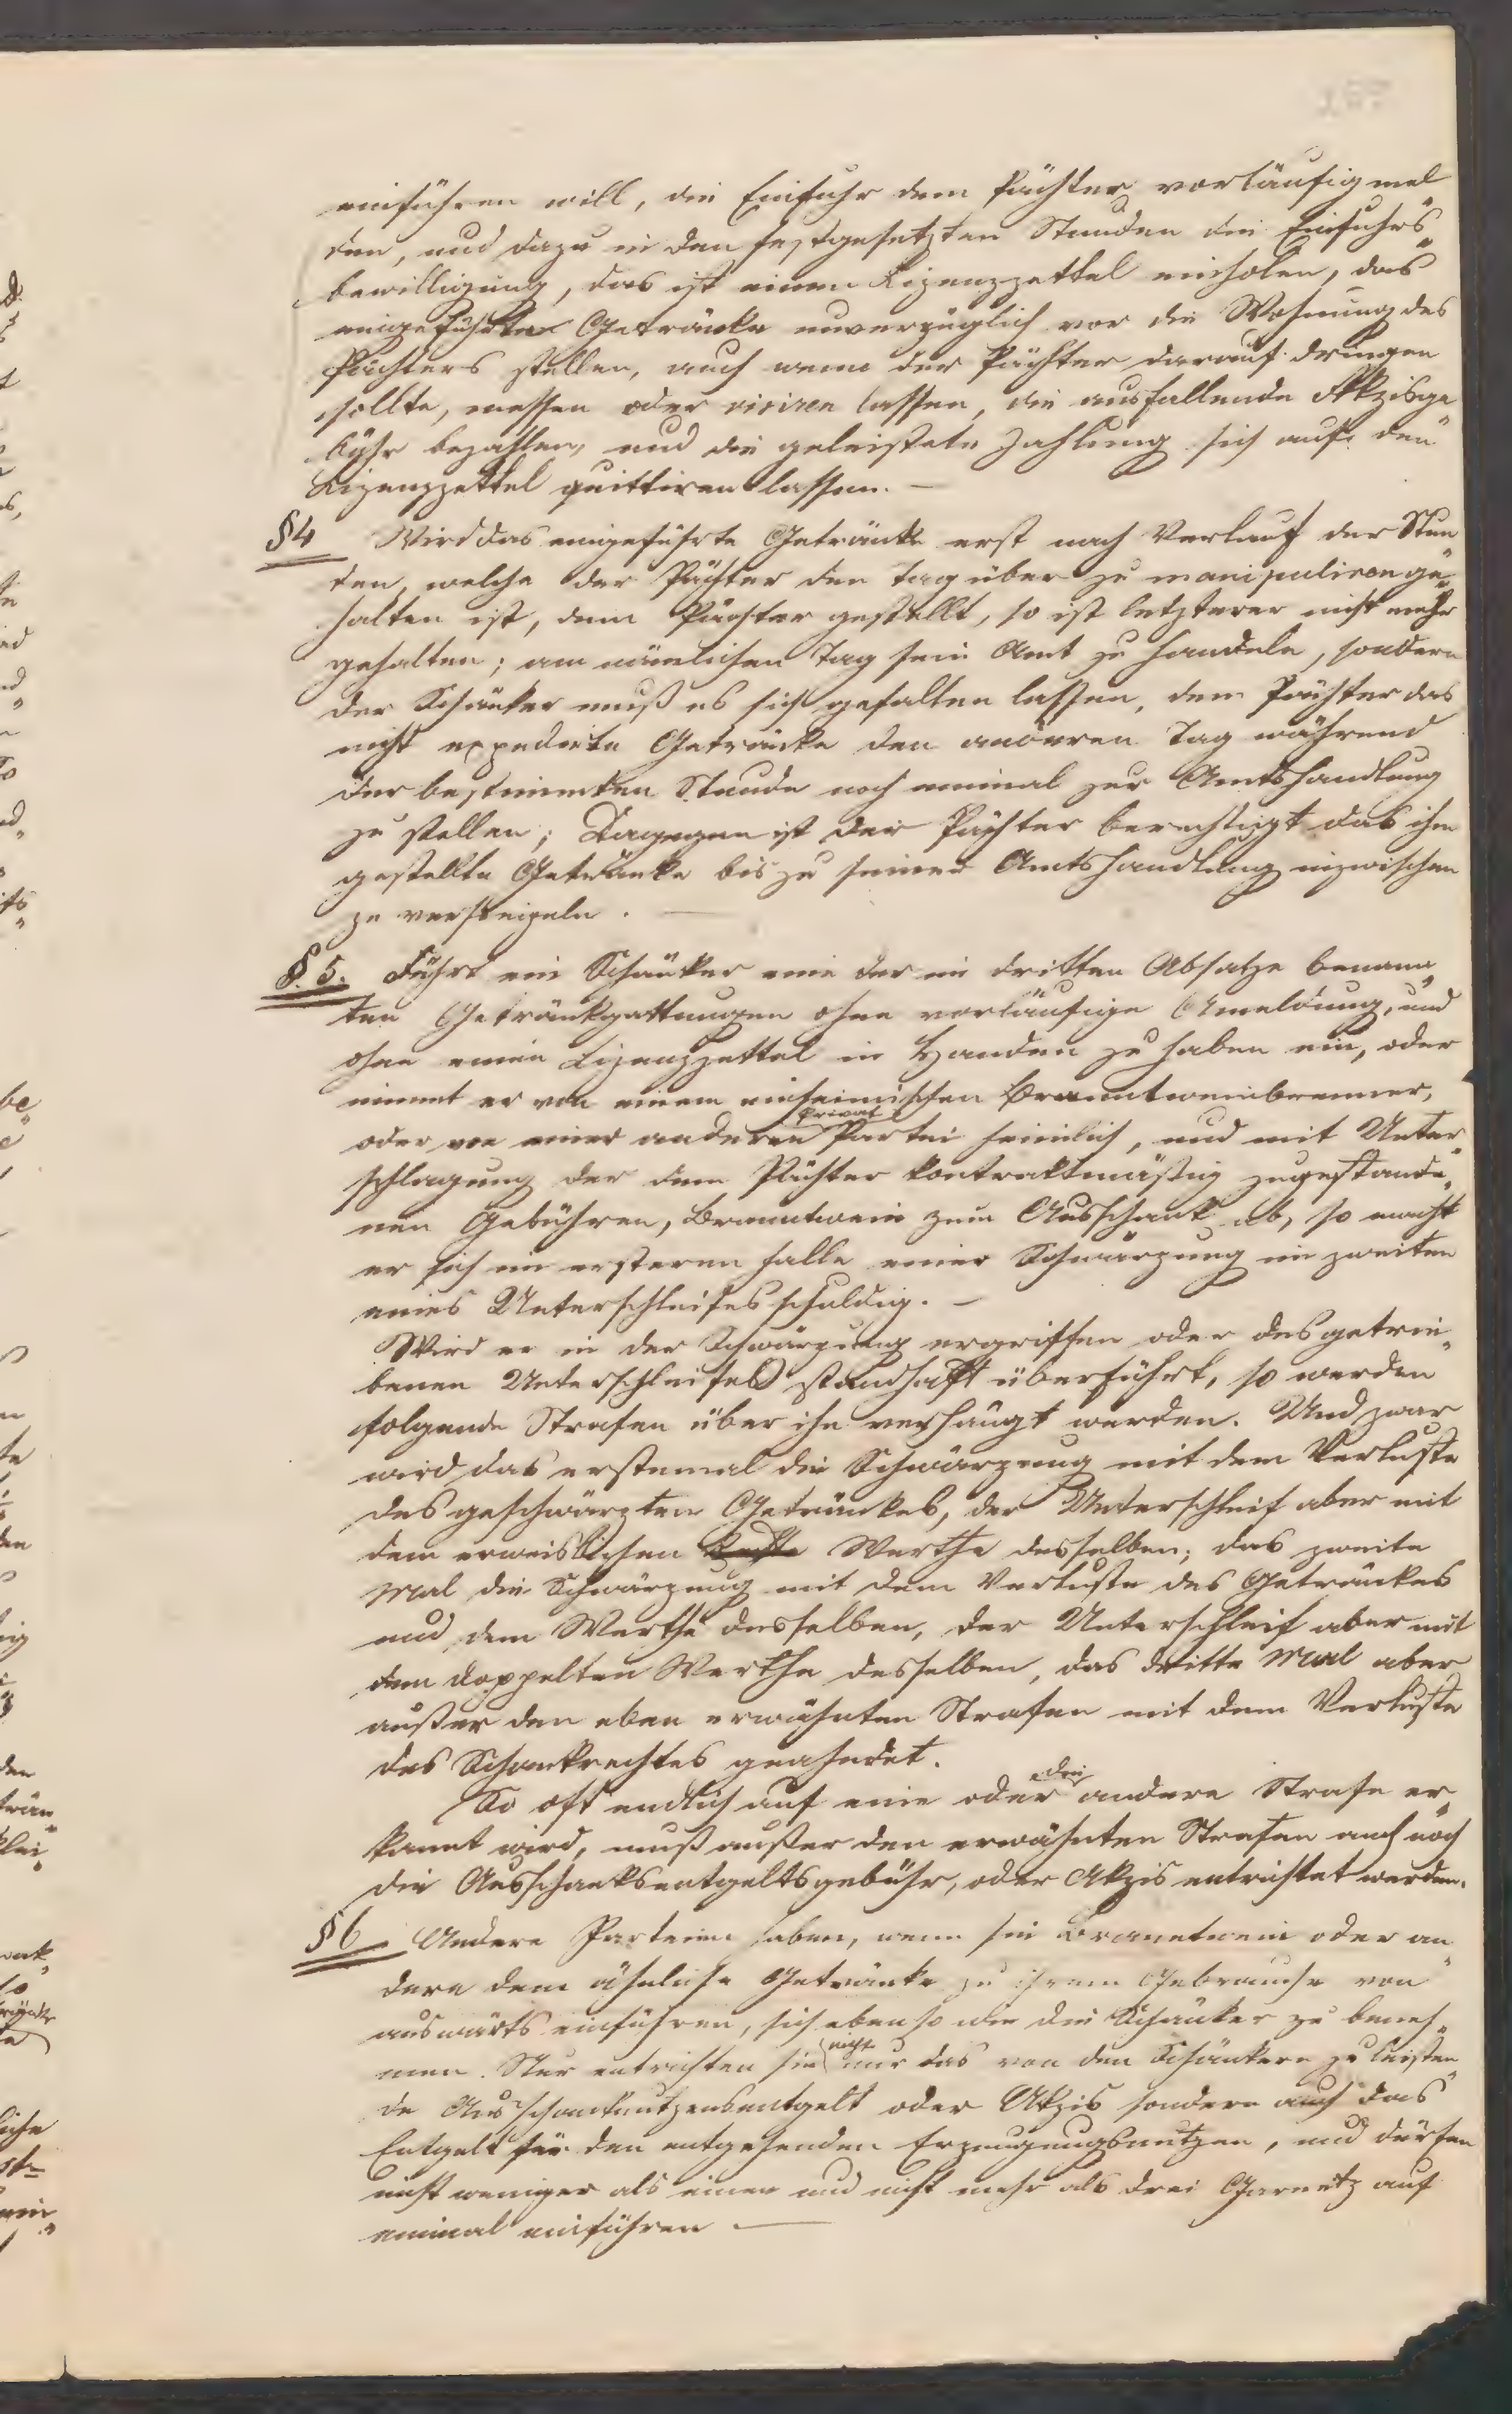 einführen will, die Einfuhr dem Pächter vorläufig mel
den, und dazu in den festgesetzten Stunden die Einfuhrs„
bewilligung, das ist einen Lizenzzettel einholen, das
eingeführte Getränke unverzüglich vor die Wohnung des
Pächters stellen, auch wenn der Pächter darauf dringen
sollte, messen oder visiren lassen, die ausfallende Akzisge
bühr bezahlen, und die geleistete Zahlung sich auf den
Lizenzzettel quittiren lassen. —
§4 Wird das eingeführte Getränke erst nach Verlauf der Stun
den, welche der Pächter den Tag über zu manipuliren ge„
halten ist, dem Pächter gestellt, so ist letzterer nicht mehr
gehalten; am nämlichen Tag sein Amt zu handeln, sondern
der Schänker muß es sich gefallen lassen, dem Pächter das
nicht expedirte Getränke den anderen Tag während
der bestimmten Stunde noch einmal zur Amtshandlung
zu stellen; Dagegen ist der Pächter berechtigt das ihm
gestellte Getränke bis zu seiner Amtshandlung inzwischen
zu versiegeln. —
§. 5. Führt ein Schänker eine der im dritten Absatze benann„
ten Getränkgattungen ohne vorläufige Anmeldung, und
ohne einen Lizenzzettel in Handen zu haben ein, oder
nimmt er von einem einheimischen Branntweinbrenner,
oder von einer anderen Privat Partei heimlich, und mit Unter„
schlagung der dem Pächter kontraktmäßig zugestande„
nen Gebühren, Branntwein zum Ausschank ab, so macht
er sich im ersteren Falle einer Schwärzung im zweiten
eines Unterschleifes schuldig. —
Wird er in der Schwärzung ergriffen oder des getrie„
benen Unterschleifes standhaft überführt, so werden
folgende Strafen über ihn verhängt werden. Und zwar
wird das erstemal die Schwärzung mit dem Verluste
des geschwärzten Getränkes, der Unterschleif aber mit
dem erweislichen Werthe desselben; das zweite
Mal die Schwärzung mit dem Verluste des Getränkes
und dem Werthe desselben, der Unterschleif aber mit
dem doppelten Werthe desselben, das dritte Mal aber
außer den eben erwähnten Strafen mit dem Verluste
des Schankrechtes geahndet.
So oft endlich auf eine oder die andere Strafe er„
kannt wird, muß außer den erwähnten Strafen auch noch
die Ausschanksentgeltsgebühr, oder Akzis entrichtet werden.
§6 Andere Parteien haben, wenn sie Branntwein oder an„
dere dem ähnliche Getränke zu ihrem Gebrauche von
auswärts einführen, sich eben so wie die Schänker zu beneh„
men. Nur entrichten sie nicht nur das von den Schänkern zu leisten„
de Ausschanknutzensentgelt oder Akzis sondern auch das
Entgelt für den entgehenden Erzeugungsnutzen, und dürfen
nicht weniger als einen und nicht mehr als drei Garnetz auf
einmal einführen —